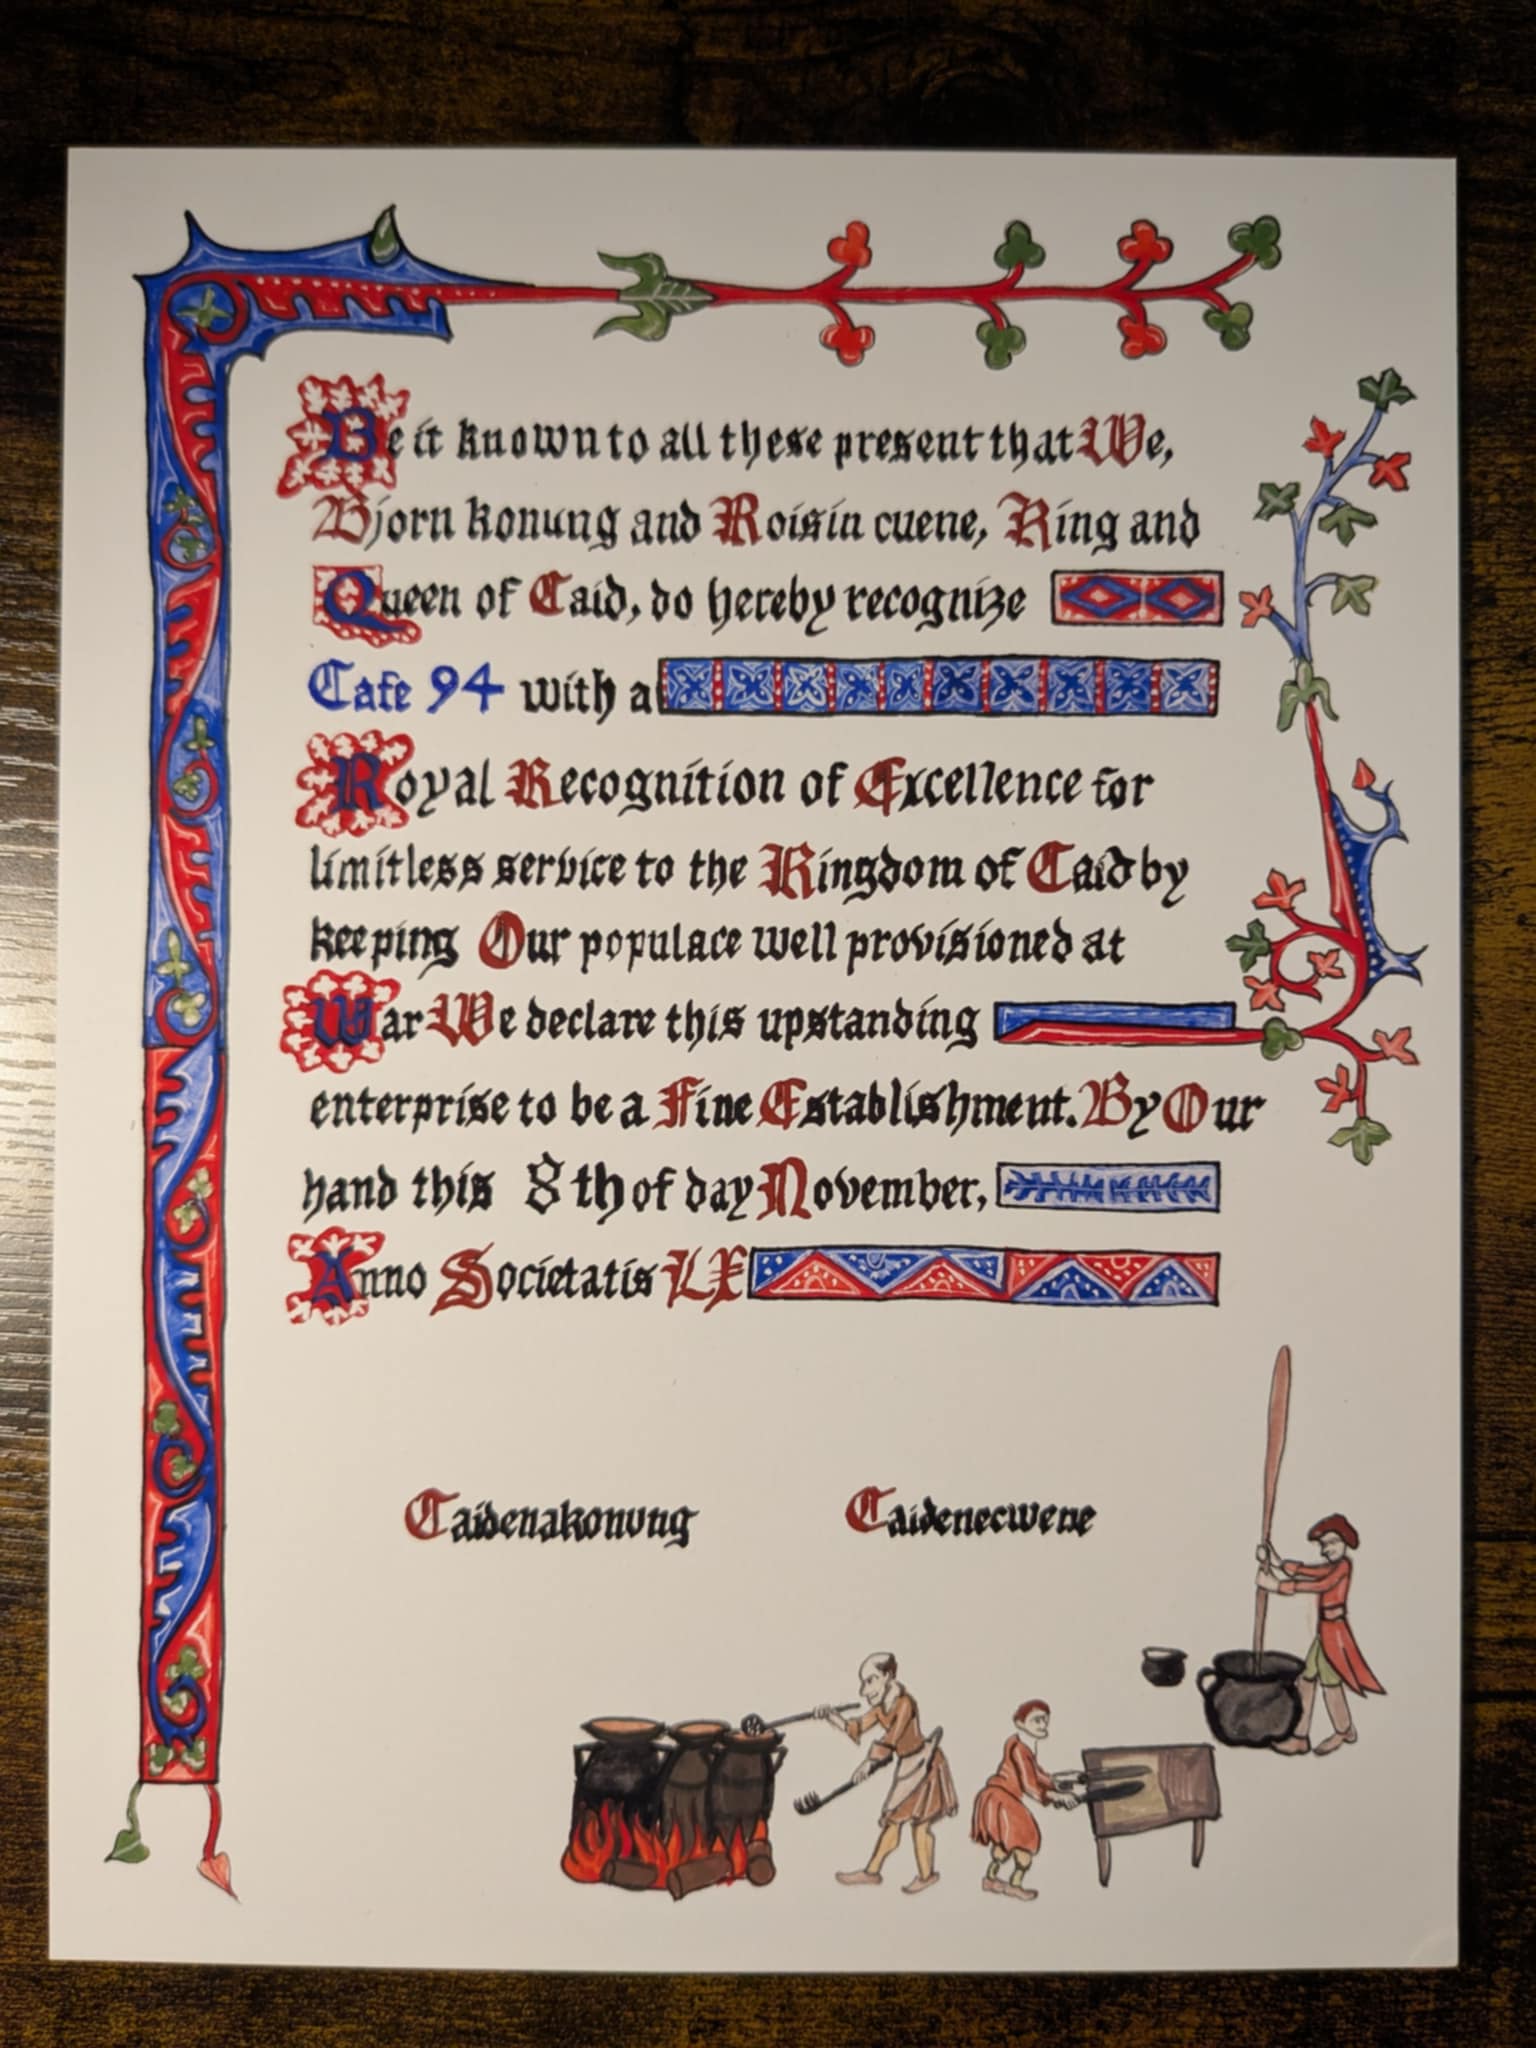 Be it known to all these present that We,
Bjorn konung and Roisin cuene, King and
Queen of Caid, do hereby recognize
Cafe 94 with a
Royal Recognition of Excellence for
limitless service to the Kingdom of Caid by
keeping Our populace well provisioned at
War We declare this upstanding
enterprise to be a Fine Establishment. By Our
hand this 8th of day November,
Anno Societatis LX
Caidenakonung Caidenecwene